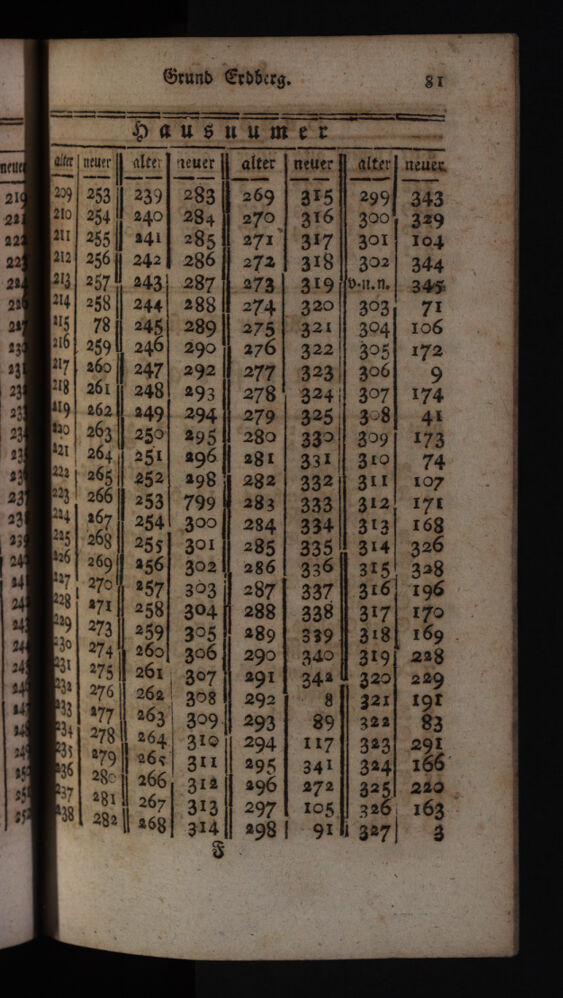 Grund Erdberg. 81
Hausnumer
alter neuer alter neuer alter neuer alter neuer
209 253 239 283 269 315 299 343
210 254 240 284 270 316 300 329
211 255 241 285 271 317 301 104
212 256 242 286 272 318 302 344
213 257 243 287 273 319 v.u.n. 345
214 258 244 288 274 320 303 71
215 78 245 289 275 321 304 106
216 259 246 290 276 322 305 172
217 260 247 292 277 323 306 9
218 261 248 293 278 324 307 174
219 262 249 294 279 325 308 41
220 263 250 295 280 330 309 173
221 264 251 296 281 331 310 74
222 265 252 298 282 332 311 107
223 266 253 799 283 333 312 171
224 267 254 300 284 334 313 168
225 268 255 301 285 335 314 326
226 269 256 302 286 336 315 328
227 270 257 303 287 337 316 196
228 271 258 304 288 338 317 170
229 273 259 305 289 339 318 169
230 274 260 306 290 340 319 228
231 275 261 307 291 342 320 229
232 276 262 308 292 8 321 191
233 277 263 309 293 89 322 83
234 278 264 310 294 117 323 291
235 279 265 311 295 341 324 166
236 280 266 312 296 272 325 220
237 281 267 313 297 105 326 163
238 282 268 314 298 91 327 3
F